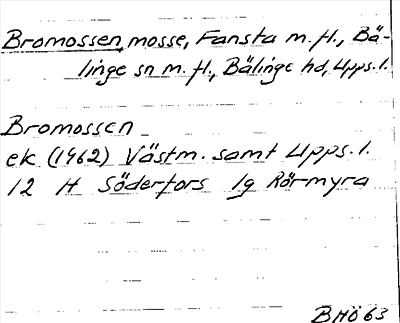 Bromossen, mosse, Fansta m. fl., Bä-
linge sn m. fl., Bälinge hd, Upps. l.
Bromossen
ek (1962) Västm. samt Upps. l.
12 H Söderfors 1g Rörmyra
BHÖ 63